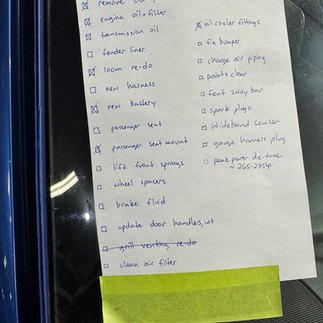 remove
engine oil + filter
transmission oil
fender liner
loom re-do
new harness
new battery
passenger seat
passenger seat mount
lift front springs
wheel spacers
brake fluid
update door handles, int
grill venting re-do
clean air filter
oil cooler fittings
fix bumper
charge air piping
paint + clear
front sway bar
spark plugs
wideband sensor
gauge harness plug
peak power de-tune
~ 265-275hp